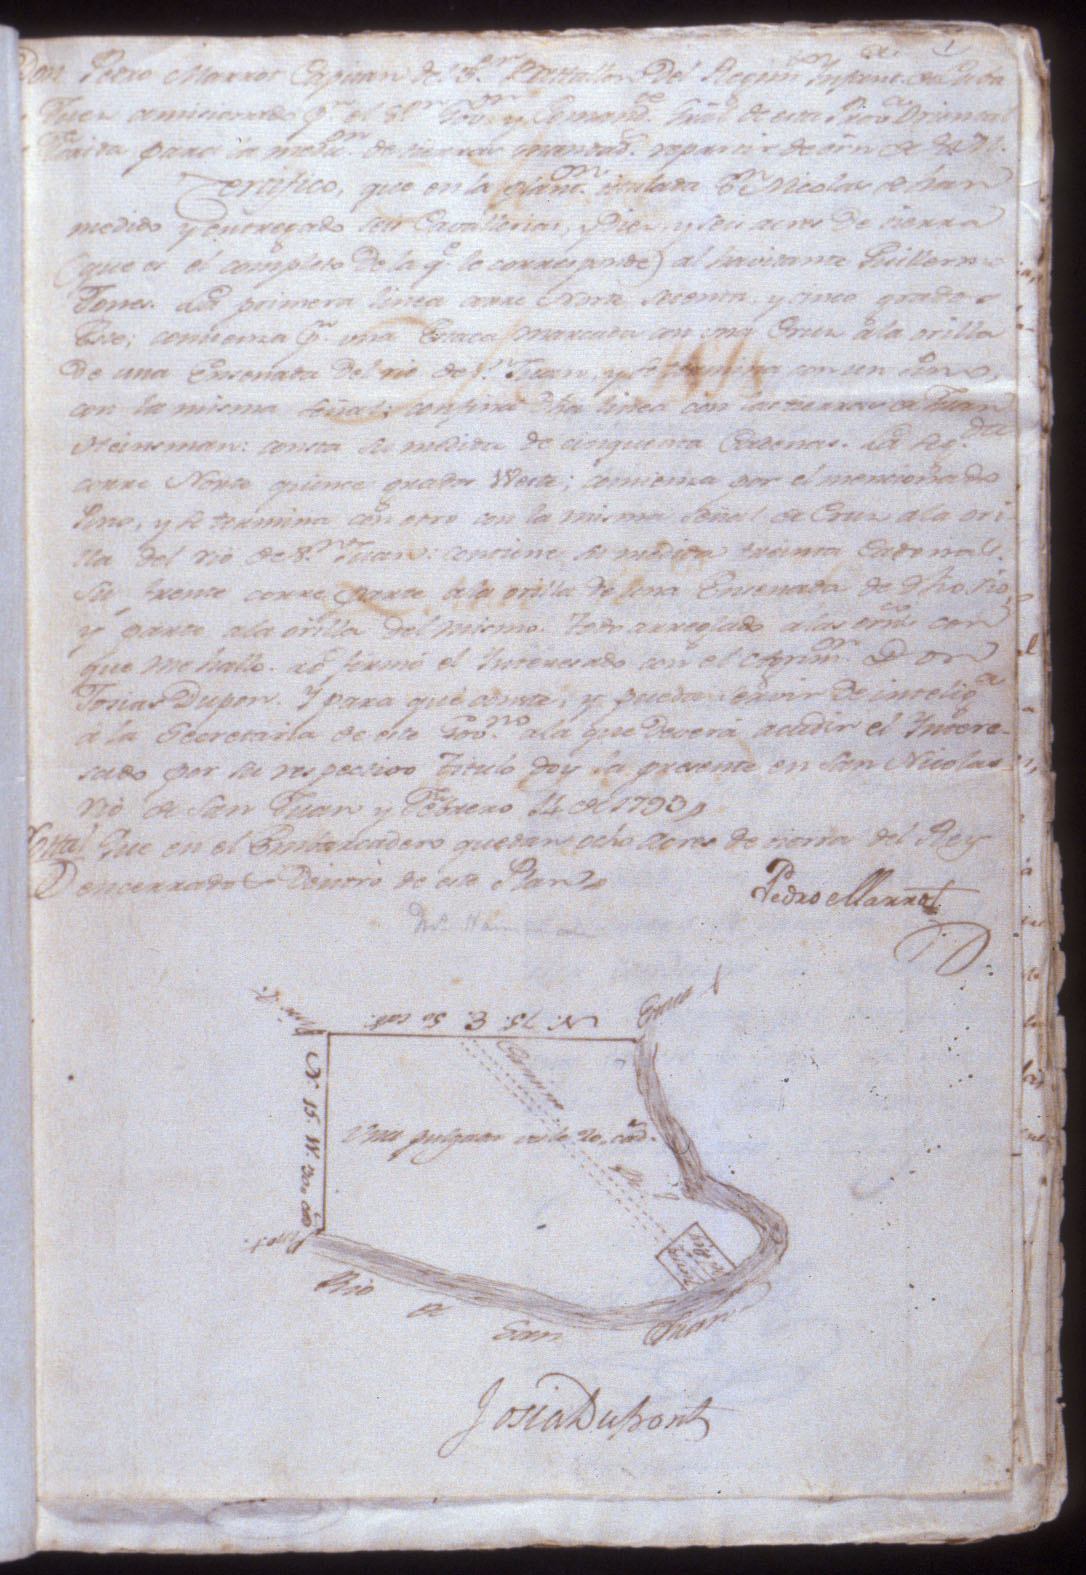 Don Pedro Marrot Capitan del 3.er Batallon Del Regim.to Infant.a de Cuba
Juez comisionado p.r el S.r Gov.or y Comand.te Gral de esta Prov.a Oriental
Florida para la medi.on de tierras mandad.s repartir de orn de S. M.
Certifico, que en la plant.on titulada S.n Nicolas se han
medido y entregado seis Cavallerias, y Diez, y seis acres de tierra
(que es el completo de la q.e le corresponde) al havitante Guillermo
Jones. La primera linea corre Norte setenta, y cinco grados
Este; comienza p.r una Estaca marcada con una Cruz ala orilla
De una Ensenada del rio de S.n Juan, y se termina con un Pino,
con la misma señal; confina dha linea con las tierras de Juan
Heinsman: consta su medida de cinquenta Cadenas. La seg.da
corre Norte quince grados Weste; comienza por el mencionado
Pino, y se termina con otro con la misma señal de Cruz ala ori
lla del rio de S.n Juan: contiene su medida treinta Cadenas.
Su frente corre parte ala orilla de una Ensenada de dho rio,
y parte ala orilla del mismo. Todo arreglado alas orns con
que me hallo. Lo firmó el Interesado con el Agrim.or Don
Josias Dupon. Y para que conste, y pueda servir de intelig.a
à la Secretaria de este Gov.no ala que deverá acudir el Intere-
sado por su respectivo Titulo doy la presente en San Nicolas
rio de San Juan y Febrero 14 de 1793
Nota! Que en el Embarcadero quedan ocho acres de tierra del Rey
encerrados Dentro de este Plan
Pedro Marrot
N. 75. E. 50 cad.
Pino
N 15. W. 30. cad
Camino
Una pulgada vale 20. cad.
Pino
Rio de San Juan
JosiaDupont